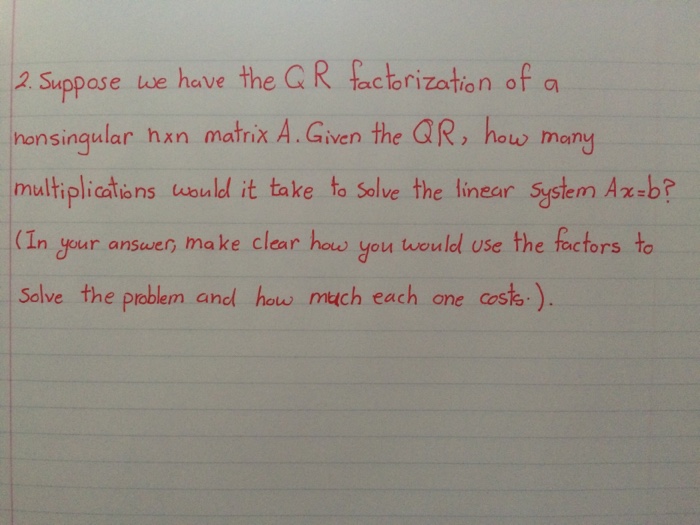 2. Suppose we have the QR factorization of a
nonsingular nxn matrix A. Given the QR, how many
multiplications would it take to solve the linear system Ax=b?
(In your answer, make clear how you would use the factors to
solve the problem and how much each one costs.).